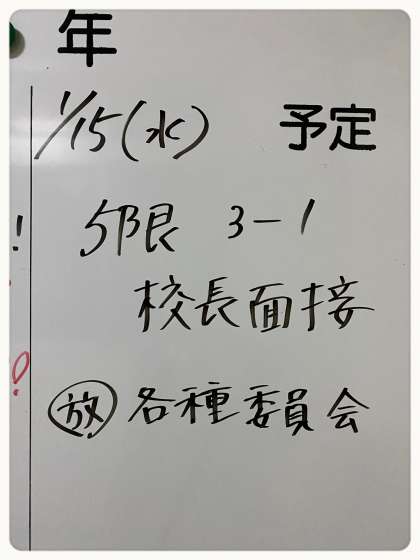 年
1/15(水) 予定
5限 3-1
校長面接
放 各種委員会
!
!